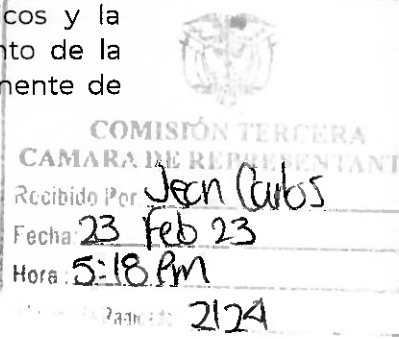 cos y la
nto de la
nente de
COMISIÓN TERCERA
CAMARA DE REPRESENTANT
Recibido Por Jean Carlos
Fecha: 23 Feb 23
Hora: 5:18 Pm
2124